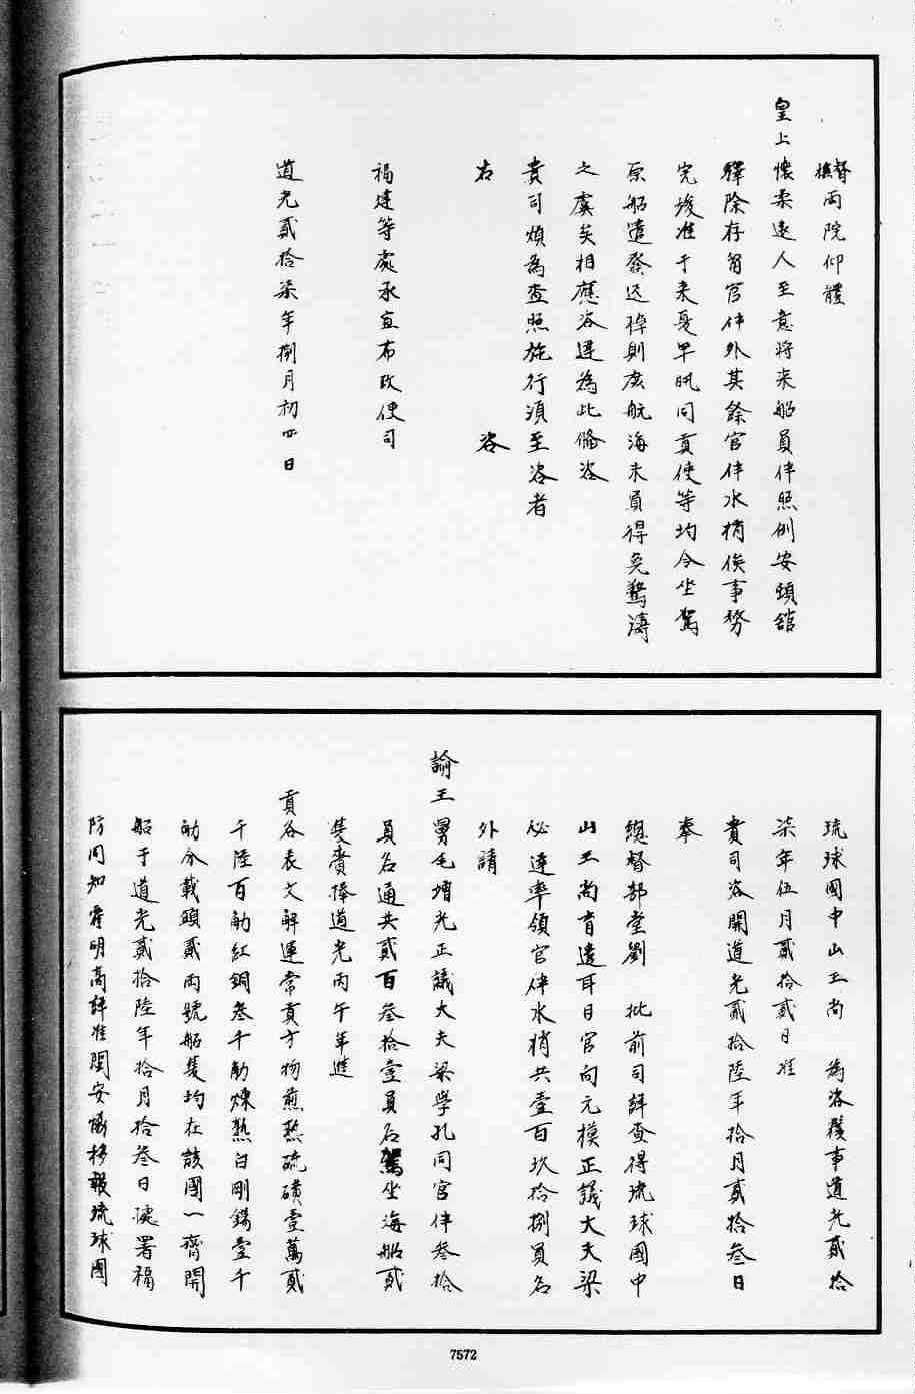 督撫兩院仰體
皇上懷柔遠人至意將來船員伴照例安頓館
驛除存留官伴外其餘官伴水梢俟事務
完竣准于來夏早汛同貢使等均令坐駕
原船遣發迅掉則庶航海末員得免驚濤
之虞矣相應咨達為此俻咨
貴司煩為查照施行須至咨者
右咨
福建等處承宣布政使司
道光貳拾柒年捌月初四日
琉球國中山王尚 為咨覆事道光貳拾
柒年伍月貳拾貳日准
貴司咨開道光貳拾陸年拾月貳拾叁日
奉
總督部堂劉 批前司詳查得琉球國中
山王尚育遣耳目官向元模正議大夫梁
必達率領官伴水梢共壹百玖拾捌員名
外請
諭王舅毛增光正議大夫梁學孔同官伴叁拾
員名通共貳百叁拾壹員名駕坐海船貳
隻賫捧道光丙午年進
貢各表文解運常貢方物煎熟硫磺壹萬貳
千陸百觔紅銅叁千觔煉熟白剛錫壹千
觔分載頭貳兩號船隻均在該國一齊開
船于道光貳拾陸年拾月拾叁日據署福
防同知霍明高詳准閩安協移報琉球國
7572